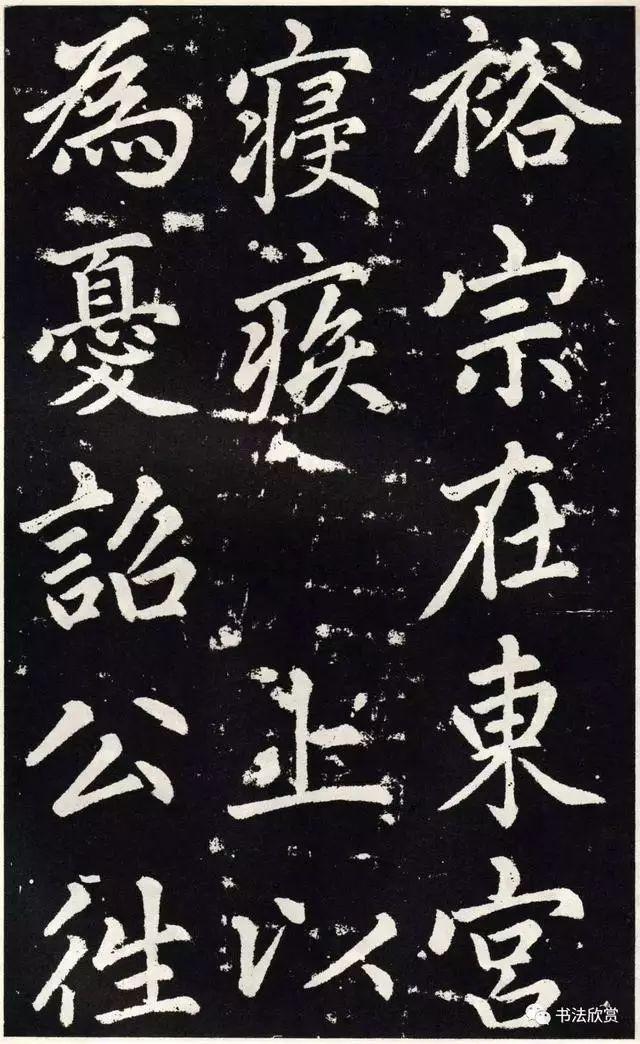 裕宗在東宮
寢疾上以
為憂詔公徃
书法欣赏